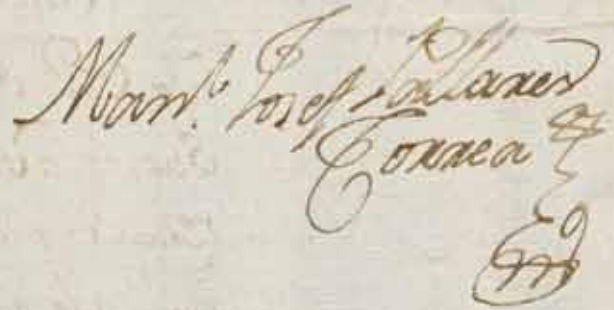 Man.l Josef Pallares
Correa